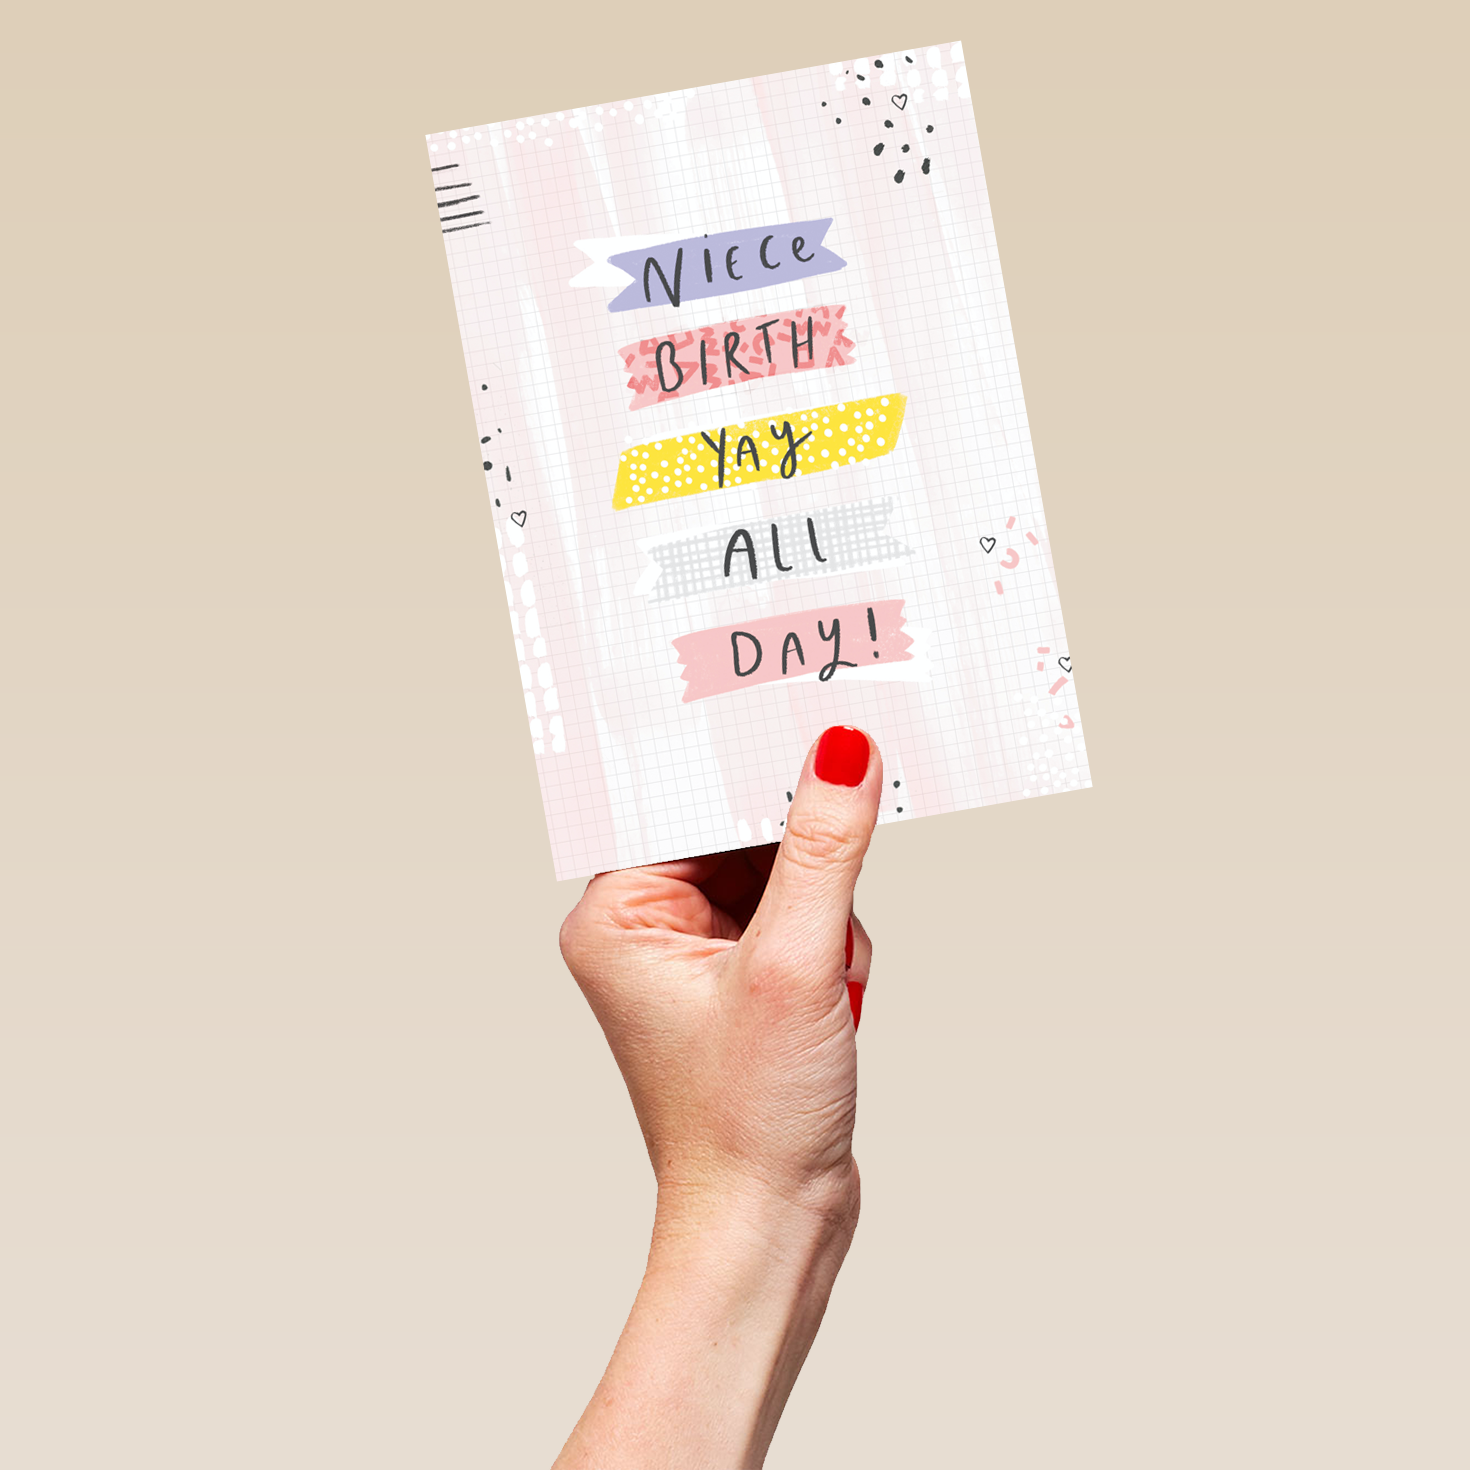 Niece
BIRTH
YAY
ALL
DAY!